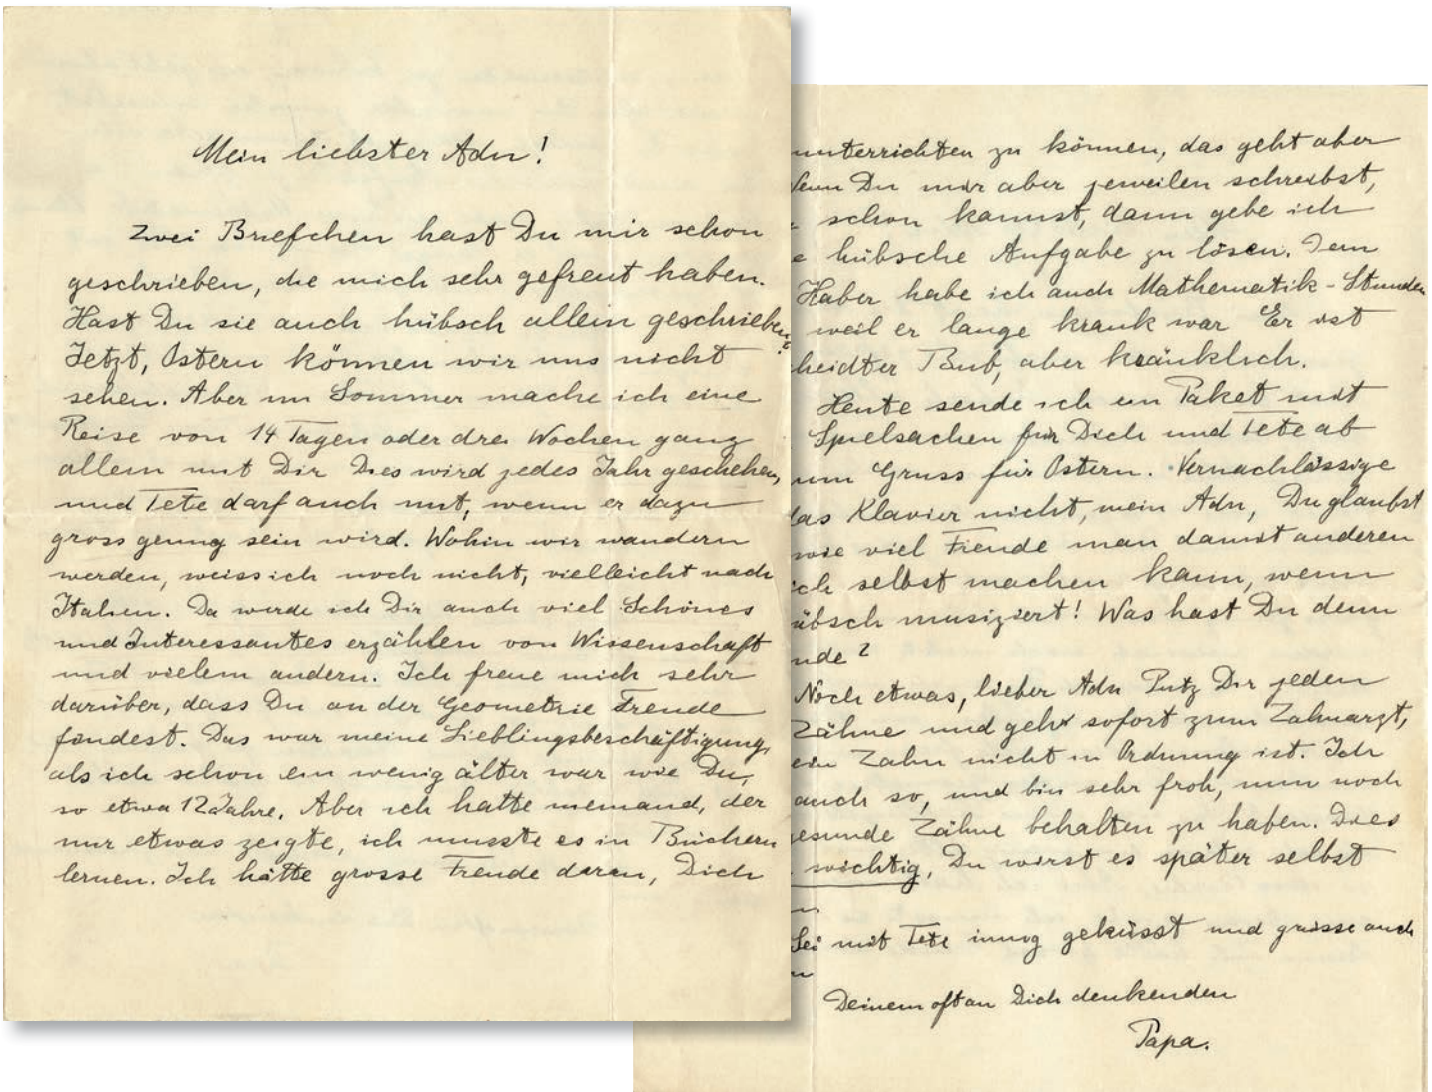 Mein liebster Adn!
Zwei Briefchen hast Du mir schon
geschrieben, die mich sehr gefreut haben.
Hast Du sie auch hübsch allein geschrieben?
Jetzt, Ostern können wir uns nicht
sehen. Aber im Sommer mache ich eine
Reise von 14 Tagen oder drei Wochen ganz
allein mit Dir Dies wird jedes Jahr geschehen,
und Tete darf auch mit, wenn er dazu
gross genug sein wird. Wohin wir wandern
werden, weiss ich noch nicht, vielleicht nach
Italien. Da werde ich Dir auch viel Schönes
und Interessantes erzählen von Wissenschaft
und vielem andern. Ich freue mich sehr
darüber, dass Du an der Geometrie Freude
findest. Das war meine Lieblingsbeschäftigung,
als ich schon ein wenig älter war wie Du,
so etwa 12 Jahre. Aber ich hatte niemand, der
mir etwas zeigte, ich musste es in Büchern
lernen. Ich hätte grosse Freude daran, Dich
unterrichten zu können, das geht aber
Wenn Du mir aber jeweilen schreibst,
schon kannst, dann gebe ich
e hübsche Aufgabe zu lösen. Dem
Haber habe ich auch Mathematik-Stunden
weil er lange krank war Er ist
heidter Bub, aber kränklich.
Heute sende ich ein Paket mit
Spielsachen für Dich und Tete ab
um Gruss für Ostern. Vernachlässige
das Klavier nicht, mein Adn, Du glaubst
wie viel Freude man damit anderen
ich selbst machen kann, wenn
übsch musiziert! Was hast Du denn
nde?
Noch etwas, lieber Adn Putz Dir jeden
Zähne und geh sofort zum Zahnarzt,
ein Zahn nicht in Ordnung ist. Ich
auch so, und bin sehr froh, nun noch
gesunde Zähne behalten zu haben. Dies
wichtig, Du wirst es später selbst
Sei mit Tete innig geküsst und grüsse auch
Deinem oft an Dich denkenden
Papa.